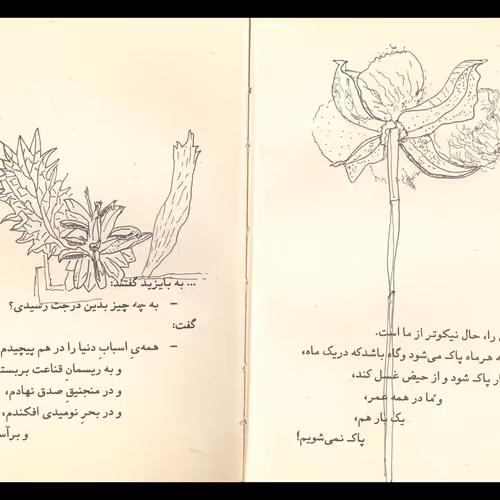 ... به بایزید گفتند:
– به چه چیز بدین درجت رسیدی؟
گفت:
– همه‌یِ اسبابِ دنیا را در هم پیچیدم
و به ریسمانِ قناعت
و در منجنیقِ صدق نهادم،
و در بحرِ نومیدی افکندم،
را، حال نیکوتر از ما است.
هرماه پاک می‌شود وگاه باشدکه دریک ماه،
پاک شود و از حیض غسل کند،
و ما در همه عمر،
یک بار هم،
پاک نمی‌شویم!